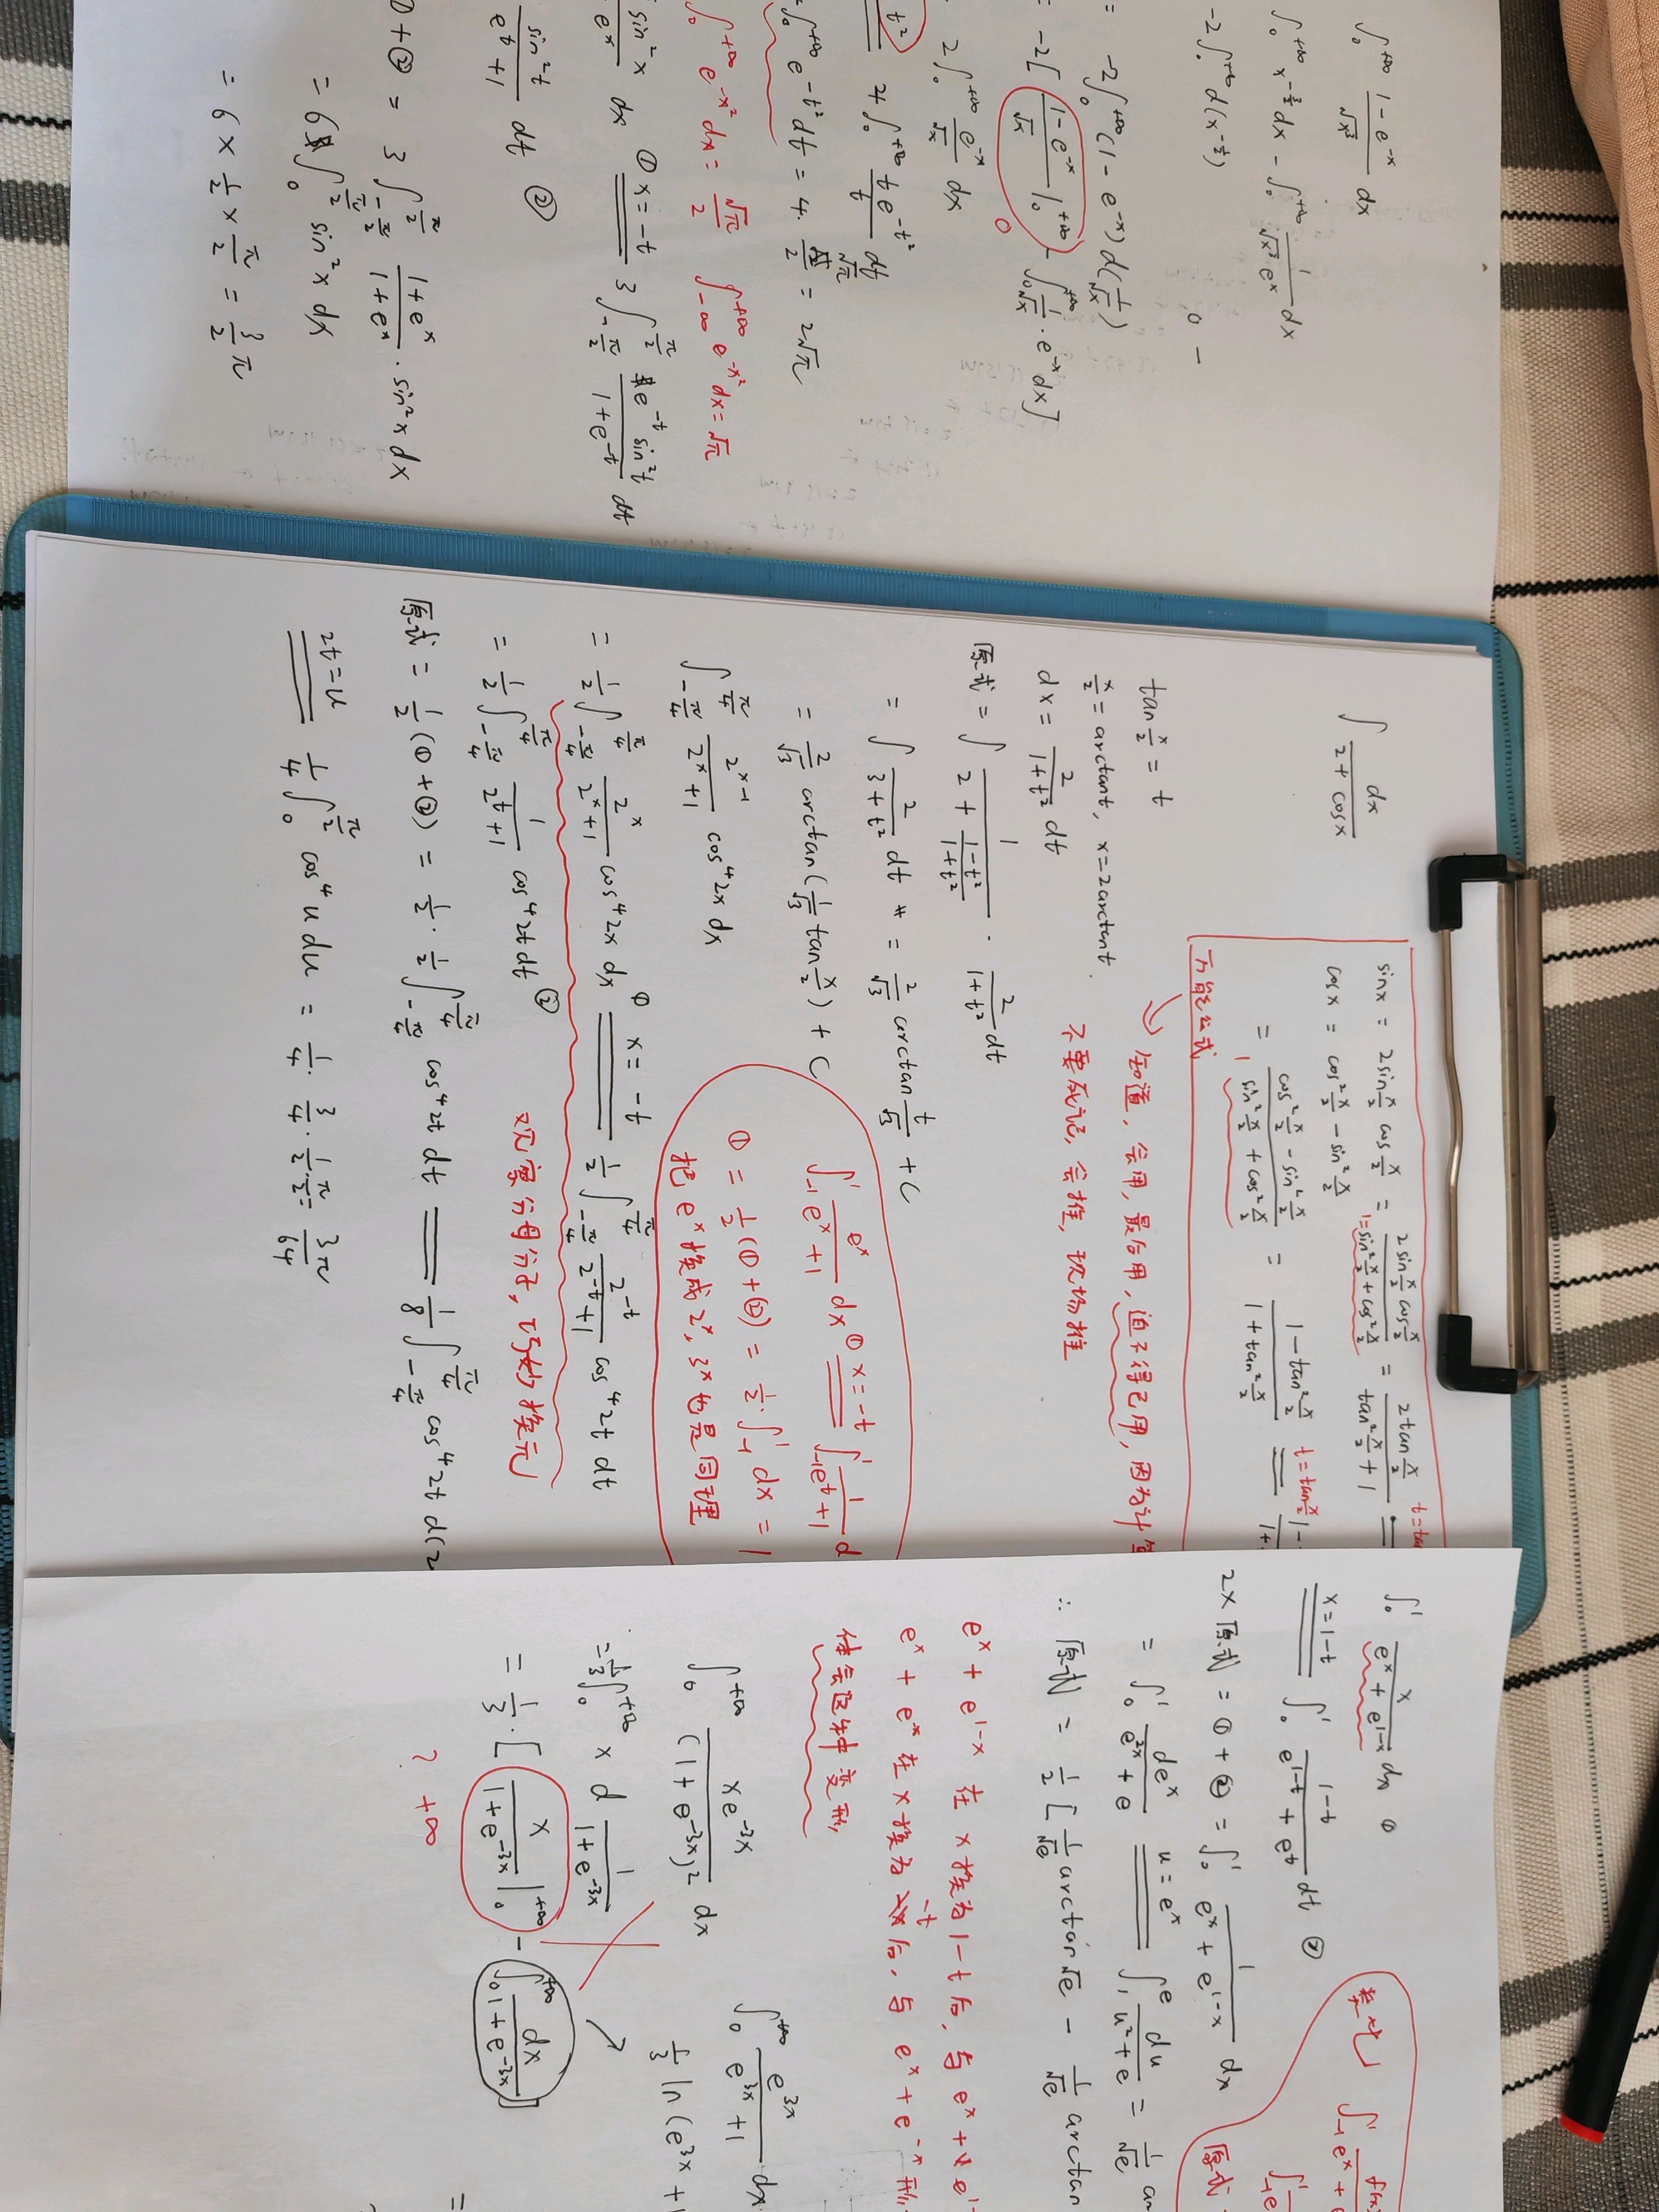 ∫₀^{+∞} (1-e^{-x})/√x³ dx
∫₀^{+∞} x^{-3/2} dx - ∫₀^{+∞} 1/(√x³ e^x) dx
-2∫₀^{+∞} d(x^{-1/2}) 0 -
= -2∫₀^{+∞} (1-e^{-x}) d(1/√x)
= -2[ (1-e^{-x})/√x |₀^{+∞} - ∫₀^{+∞} 1/√x · e^{-x} dx ]
0
2∫₀^{+∞} e^{-x}/√x dx
t² 2∫₀^{+∞} t e^{-t²}/t dt
∫₀^{+∞} e^{-t²} dt = 4 · √π/2 = 2√π
∫₀^{+∞} e^{-x²} dx = √π/2 ∫_{-∞}^{+∞} e^{-x²} dx = √π
sin²x/e^x dx ① x=-t 3∫_{-π/2}^{π/2} e^{-t} sin²t/(1+e^{-t}) dt
sin²t/(e^t+1) dt ②
①+② = 3∫_{-π/2}^{π/2} (1+e^x)/(1+e^x) · sin²x dx
= 6∫₀^{π/2} sin²x dx
= 6 × 1/2 × π/2 = 3/2 π
∫ dx/(2+cosx)
sinx = 2sin x/2 cos x/2 = 2sin x/2 cos x/2 / (1=sin² x/2 + cos² x/2) = 2tan x/2 / (tan² x/2 + 1) t=tan
cosx = cos² x/2 - sin² x/2
= (cos² x/2 - sin² x/2)/(1 sin² x/2 + cos² x/2) = (1-tan² x/2)/(1+tan² x/2) t=tan x/2 1-/1+
万能公式
tan x/2 = t
x/2 = arctant, x=2arctant.
dx = 2/(1+t²) dt
知道,会用,最后用,迫不得已用,因为计算
不要死记,会推,现场推
原式 = ∫ 1/(2 + (1-t²)/(1+t²)) · 2/(1+t²) dt
= ∫ 2/(3+t²) dt = 2/√3 arctan t/√3 + C
= 2/√3 arctan(1/√3 tan x/2) + C
∫_{-1}^{1} e^x/(e^x+1) dx ① x=-t ∫_{-1}^{1} 1/(e^t+1) d
① = 1/2(①+②) = 1/2 · ∫_{-1}^{1} dx = 1
把e^x换成2^x, 3^x也是同理
∫_{-π/4}^{π/4} 2^{x-1}/(2^x+1) cos⁴2x dx
= 1/2 ∫_{-π/4}^{π/4} 2^x/(2^x+1) cos⁴2x dx ① x=-t 1/2 ∫_{-π/4}^{π/4} 2^{-t}/(2^{-t}+1) cos⁴2t dt
= 1/2 ∫_{-π/4}^{π/4} 1/(2^t+1) cos⁴2t dt ②
观察分母分子,巧妙换元
原式 = 1/2(①+②) = 1/2 · 1/2 ∫_{-π/4}^{π/4} cos⁴2t dt = 1/8 ∫_{-π/4}^{π/4} cos⁴2t d(2
2t=u 1/4 ∫₀^{π/2} cos⁴u du = 1/4 · 3/4 · 1/2 · π/2 = 3π/64
∫₀^1 x/(e^x+e^{1-x}) dx ①
x=1-t ∫₀^1 (1-t)/(e^{1-t}+e^t) dt ②
2×原式 = ①+② = ∫₀^1 1/(e^x+e^{1-x}) dx
= ∫₀^1 de^x/(e^{2x}+e) u=e^x ∫₁^e du/(u²+e) = 1/√e
∴ 原式 = 1/2 [ 1/√e arctan√e - 1/√e arctan
类比 ∫_{-1}^{1}
原式
e^x + e^{1-x} 在 x换为1-t后,与e^x+
e^x + e^{-x} 在x换为-t后,与 e^x+e^{-x}
体会这种变形
∫₀^{+∞} xe^{-3x}/(1+e^{-3x})² dx
= 1/3 ∫₀^{+∞} x d 1/(1+e^{-3x})
= 1/3 · [ x/(1+e^{-3x}) |₀^{+∞} - ∫₀^{+∞} dx/(1+e^{-3x}) ]
? +∞
∫₀^{+∞} e^{3x}/(e^{3x}+1) dx
1/3 ln(e^{3x}+
=